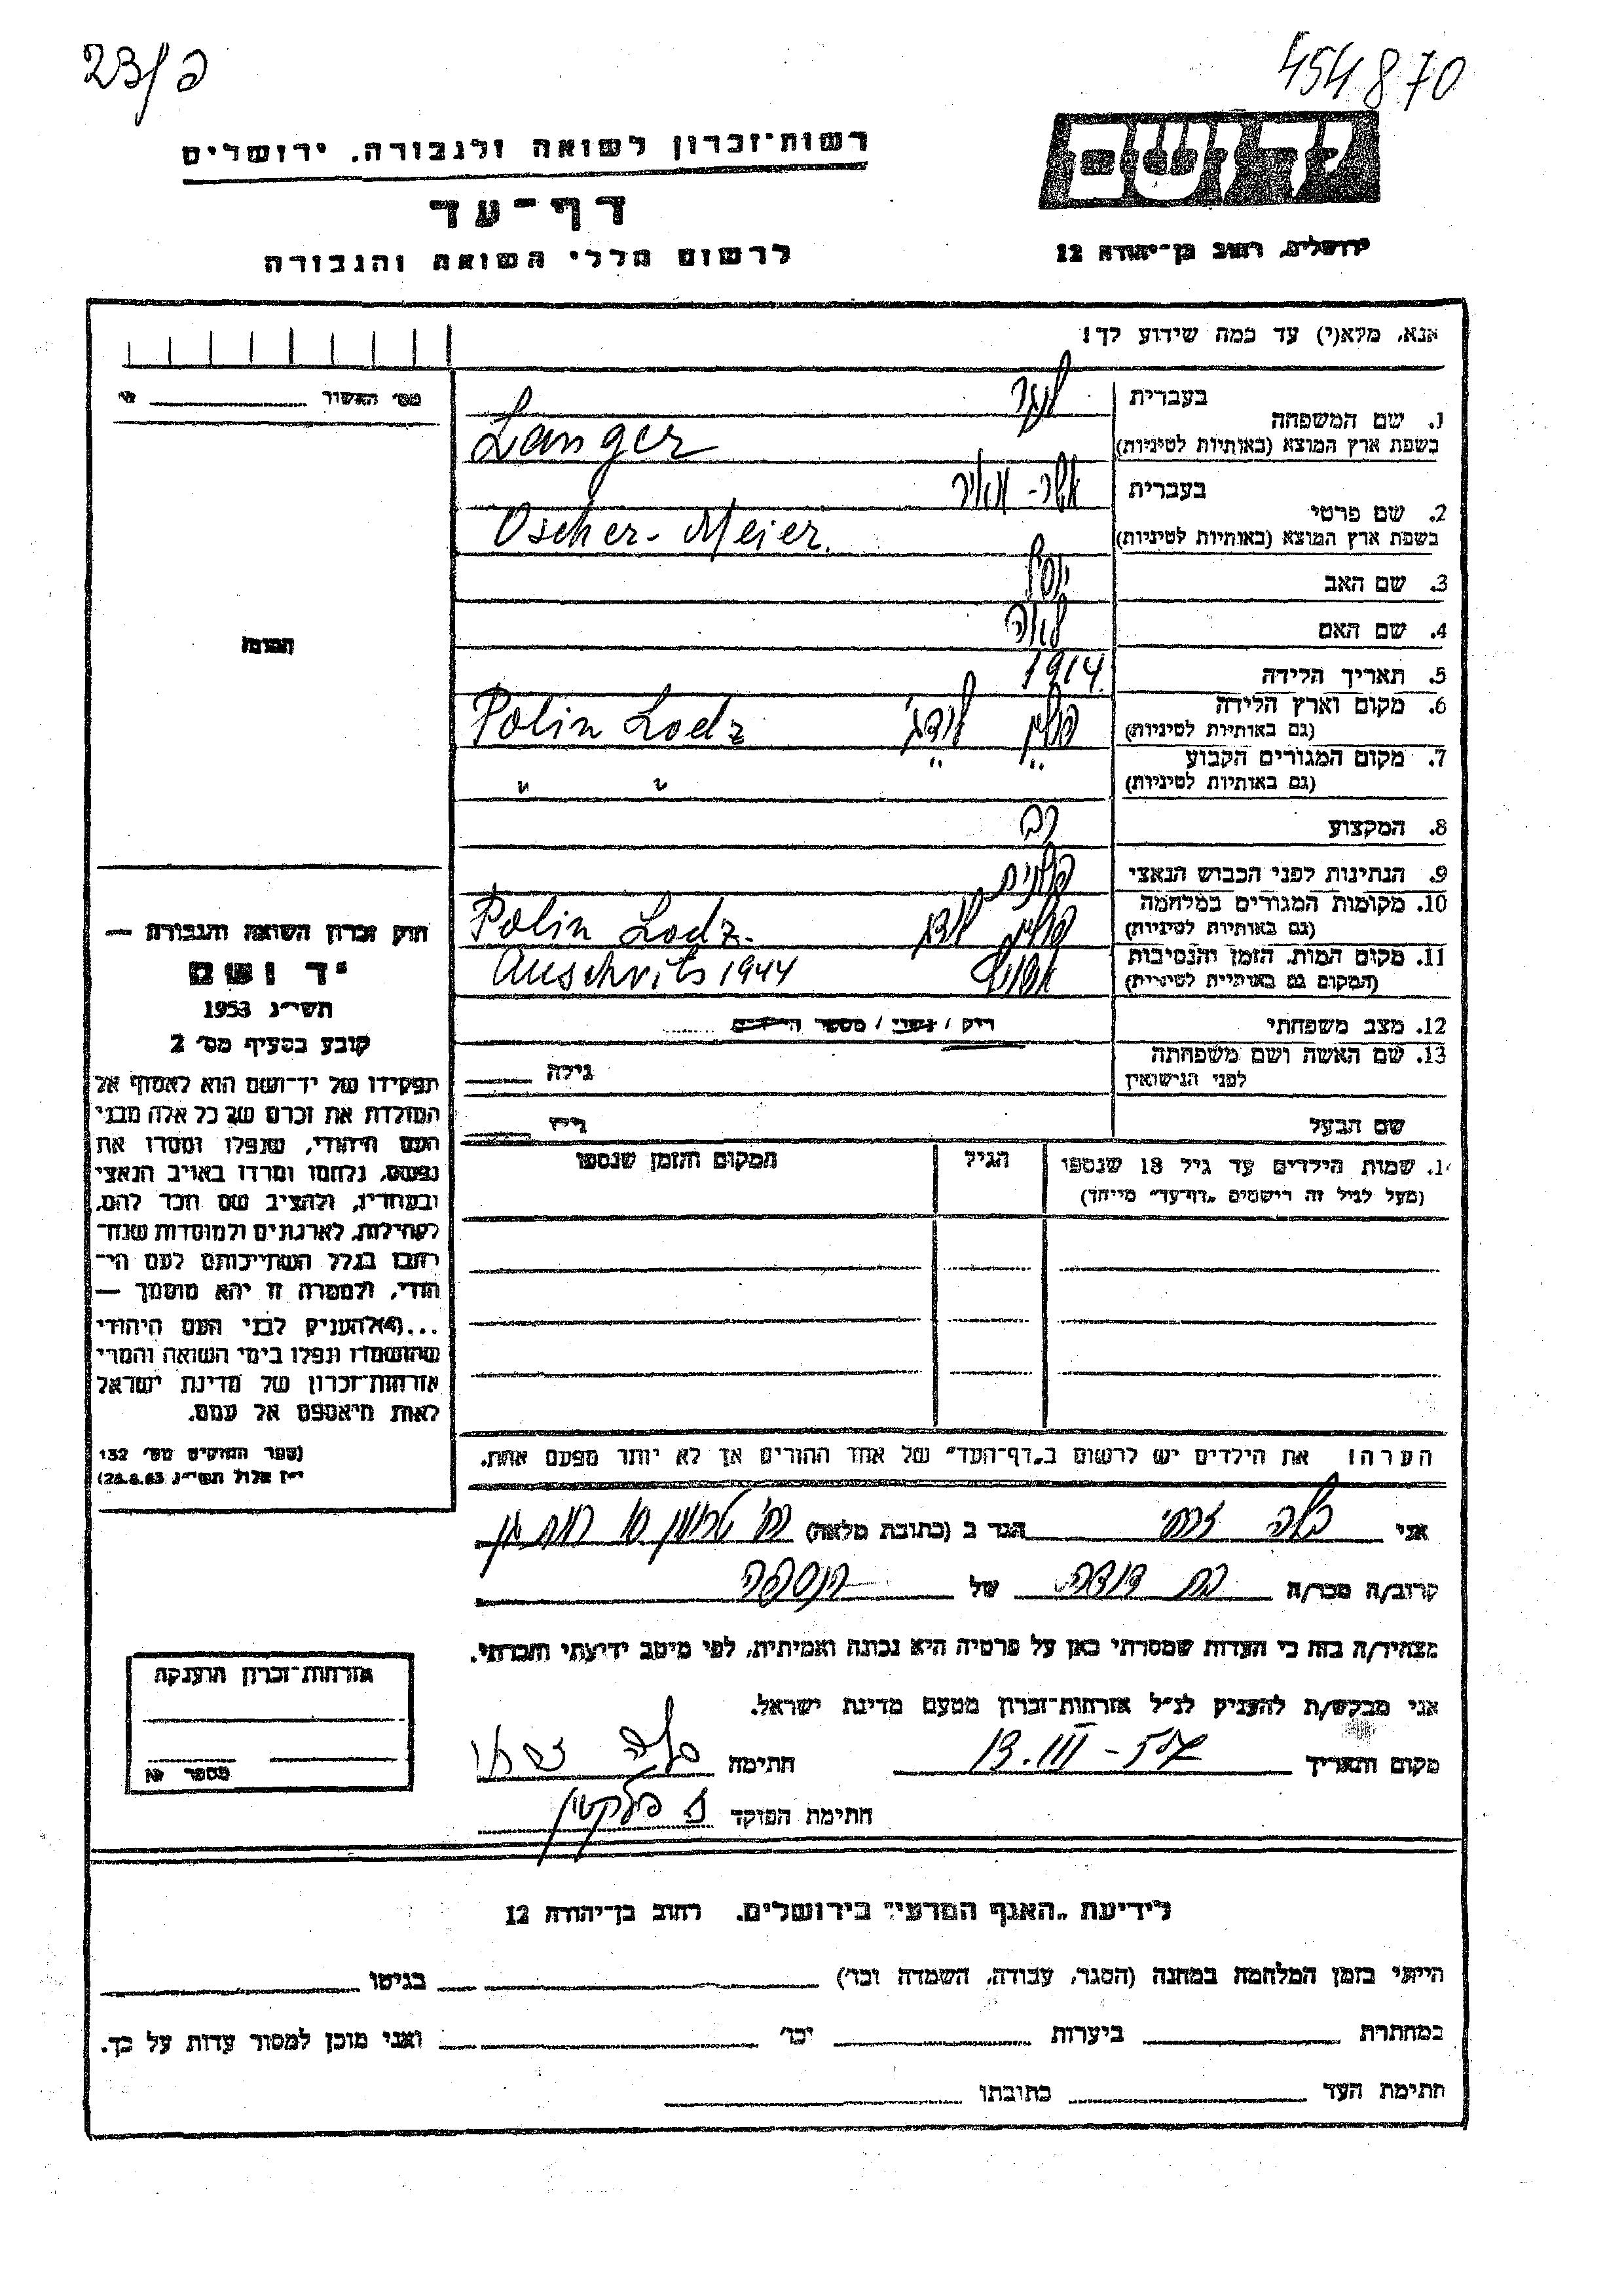 23/פ
454870
יד ושם
רשות־זכרון לשואה ולגבורה, ירושלים
דף־עד
לרשום חללי השואה והגבורה
ירושלים, רחוב בן־יהודה 12
אנא, מלא(י) עד כמה שידוע לך!
מס׳ האשור
1. שם המשפחה
בעברית לנגר
בשפת ארץ המוצא (באותיות לטיניות) Langer
2. שם פרטי
בעברית אשר - מאיר
בשפת ארץ המוצא (באותיות לטיניות) Oscher - Meier.
3. שם האב יוסף
4. שם האם לאה
5. תאריך הלידה 1914.
6. מקום וארץ הלידה
(גם באותיות לטיניות) פולין לודג׳ Polin Lodz
7. מקום המגורים הקבוע
(גם באותיות לטיניות) " " " "
8. המקצוע רב
9. הנתינות לפני הכבוש הנאצי פולנית
10. מקומות המגורים במלחמה
(גם באותיות לטיניות) פולין לודג Polin Lodz.
11. מקום המות, הזמן והנסיבות
(המקום גם באותיות לטיניות) Auschvits 1944
12. מצב משפחתי רווק / נשוי / מספר הילדים
13. שם האשה ושם משפחתה
לפני הנישואין גילה
שם הבעל גילו
14. שמות הילדים עד גיל 18 שנספו הגיל המקום והזמן שנספו
(מעל לגיל זה רושמים „דף־עד" מיוחד)
הערה! את הילדים יש לרשום ב„דף־העד" של אחד ההורים אך לא יותר מפעם אחת.
התמונה
חוק זכרון השואה והגבורה —
יד ושם
תשי״ג 1953
קובע בסעיף מס׳ 2
תפקידו של יד־ושם הוא לאסוף אל
המולדת את זכרם של כל אלה מבני
העם היהודי, שנפלו ומסרו את
נפשם, נלחמו ומרדו באויב הנאצי
ובעוזריו, ולהציב שם וזכר להם,
לקהילות, לארגונים ולמוסדות שנח־
רבו בגלל השתייכותם לעם הי־
הודי, ולמטרה זו יהא מוסמך —
...(4) להעניק לבני העם היהודי
שהושמדו ונפלו בימי השואה והמרי
אזרחות־זכרון של מדינת ישראל
לאות היאספם אל עמם.
(ספר החוקים מס׳ 132
י״ז אלול תשי״ג 28.8.53)
אני בלה הגר ב (כתובת מלאה) רח׳
קרוב/ה מכר/ה בת דודה של הנספה
מצהיר/ה בזה כי העדות שמסרתי כאן על פרטיה היא נכונה ואמיתית, לפי מיטב ידיעתי והכרתי.
אני מבקש/ת להעניק לנ״ל אזרחות־זכרון מטעם מדינת ישראל.
מקום ותאריך 13.III - 57 חתימה בלה
חתימת הפוקד
אזרחות־זכרון הוענקה
מספר
לידיעת „האגף המדעי" בירושלים. רחוב בן־יהודה 12
הייתי בזמן המלחמה במחנה (הסגר, עבודה, השמדה וכו׳) בגיטו
במחתרת ביערות וכו׳ ואני מוכן למסור עדות על כך.
חתימת העד כתובתו